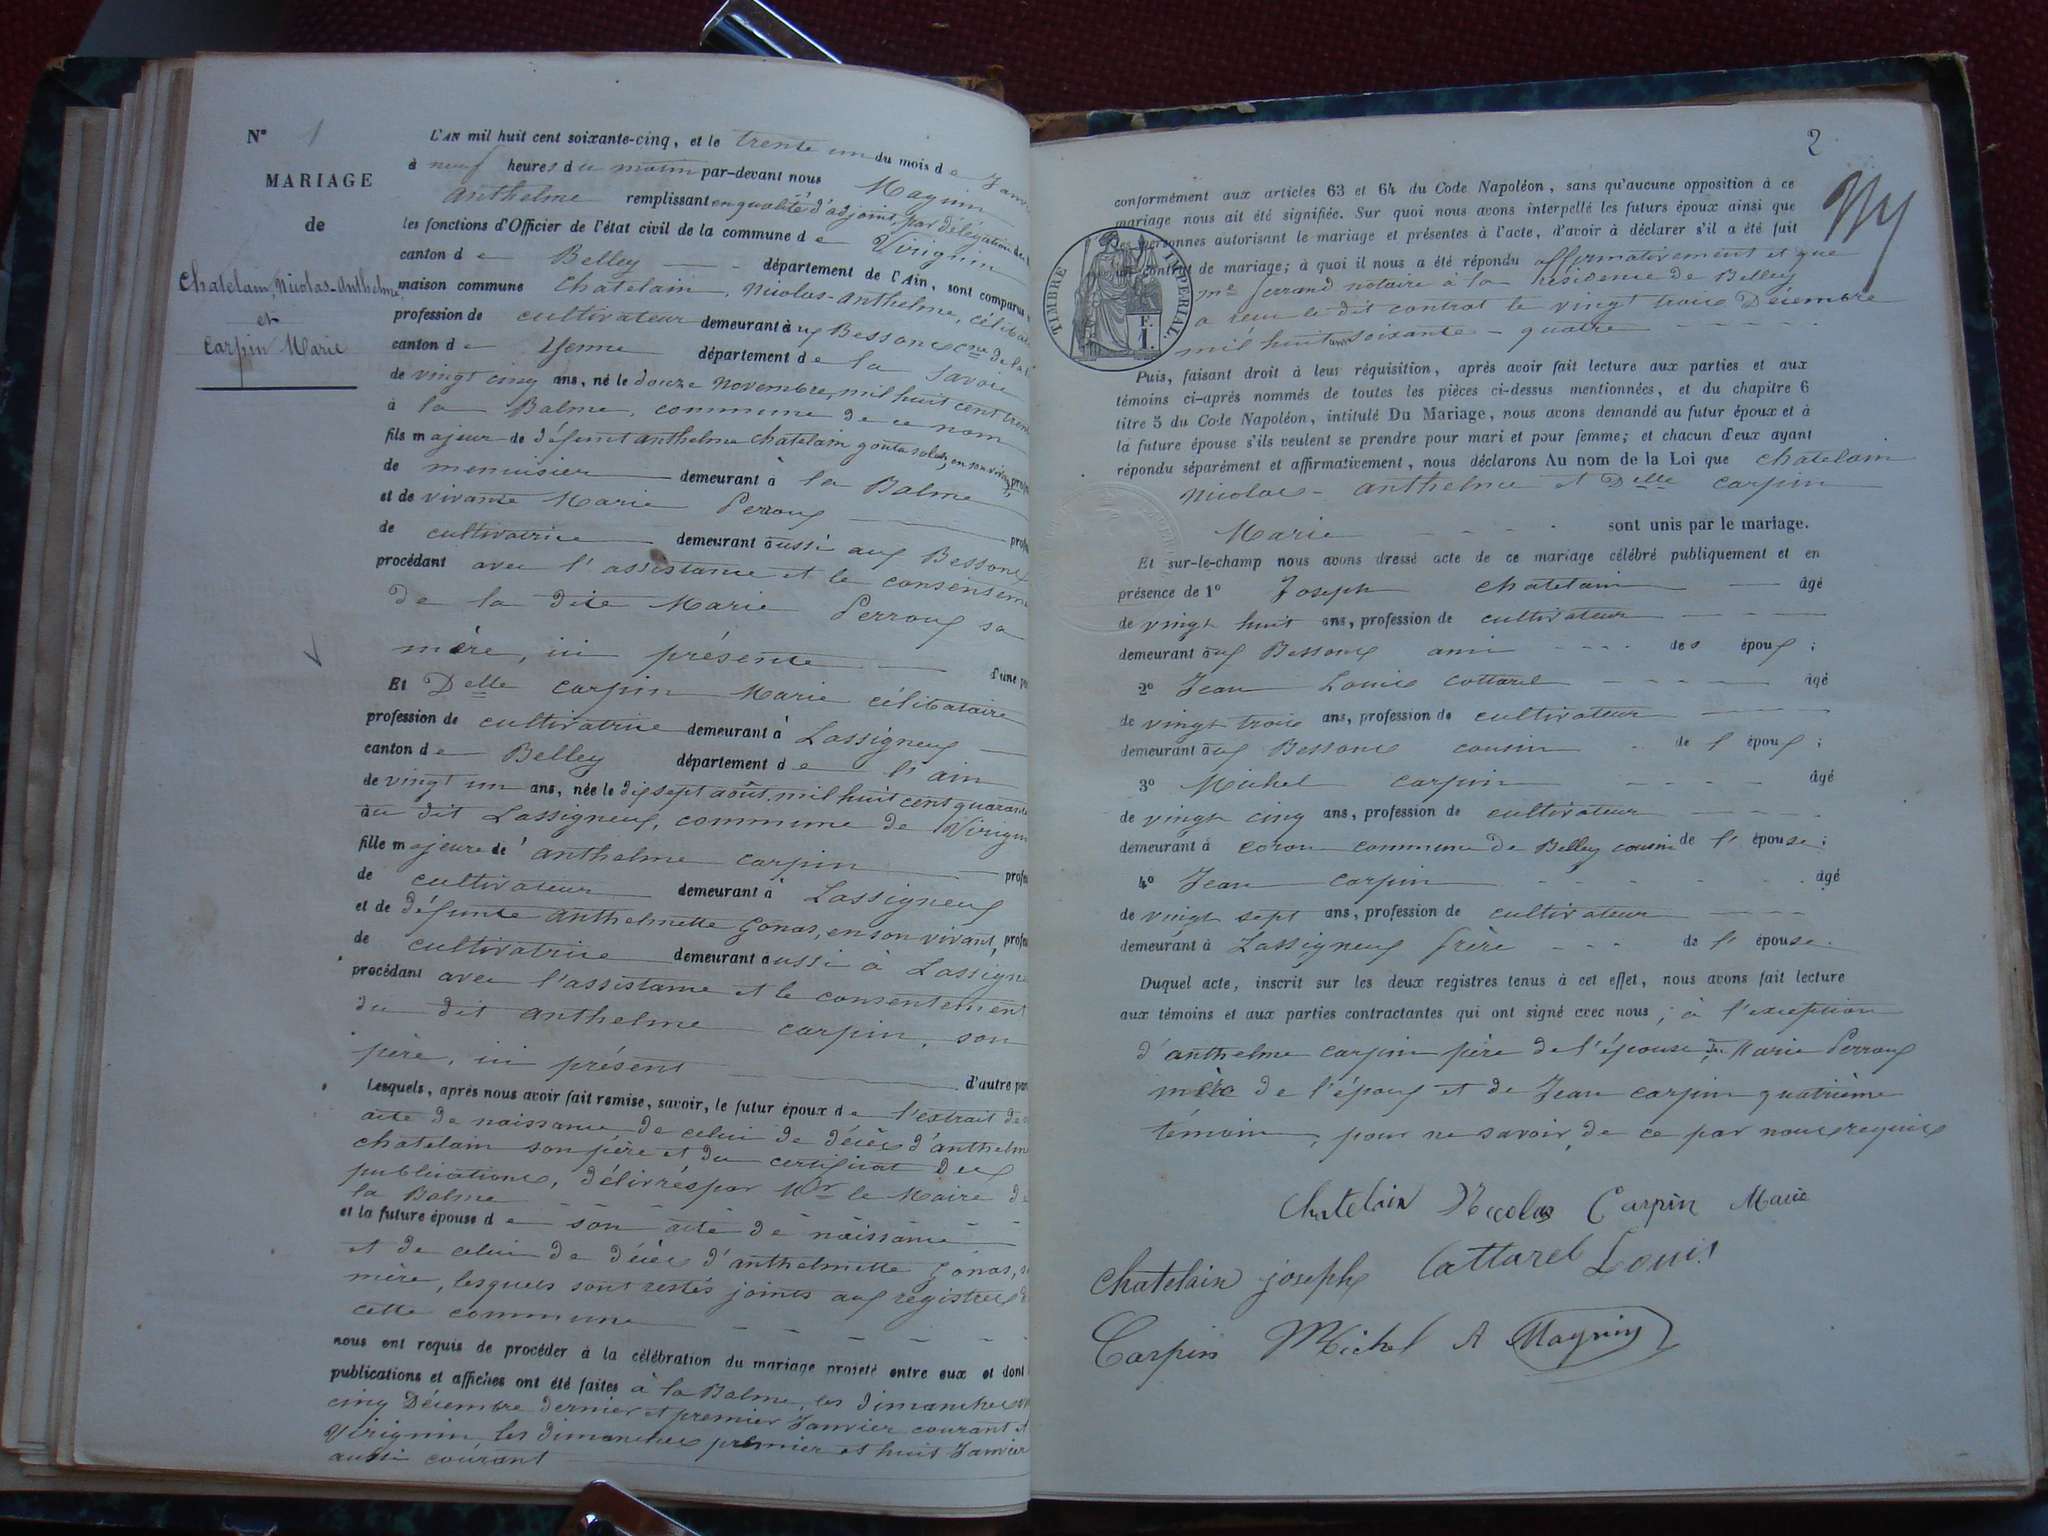 N° 1
MARIAGE
de
Chatelain, Nicolas-Anthelme,
et
Carpin Marie
L'AN mil huit cent soixante-cinq, et le trente un du mois de Janv
à neuf heures du matin par-devant nous Magnin
Anthelme remplissant en qualité d'adjoint, par délégation du
les fonctions d'Officier de l'état civil de la commune de Virignin
canton de Belley département de l'Ain, sont comparus
maison commune Chatelain, Nicolas-Anthelme, céliba
profession de cultivateur demeurant aux Bessons Cne de la
canton de Yenne département de la Savoie
de vingt cinq ans, né le douze novembre, mil huit cent trent
à la Balme, commune de ce nom
fils majeur de défunt anthelme Chatelain, en son vivant, prof
de menuisier demeurant à la Balme
et de vivante Marie Perroux
de cultivatrice demeurant aussi aux Bessons
procédant avec l'assistance et le consenteme
de la dite Marie Perroux sa
mère, ici présente d'une pa
Et Delle Carpin Marie célibataire
profession de cultivatrice demeurant à Lassigneux
canton de Belley département de l'ain
de vingt un ans, née le dix sept août, mil huit cent quarante
au dit Lassigneux, commune de Virign
fille majeure de anthelme Carpin profes
de cultivateur demeurant à Lassigneux
et de défunte anthelmette Gonas, en son vivant, profes
de cultivatrice demeurant aussi à Lassigne
procédant avec l'assistance et le consentement
du dit anthelme Carpin, son
père, ici présent d'autre par
Lesquels, après nous avoir fait remise, savoir, le futur époux de l'extrait de
acte de naissance de celui de décès d'anthelm
Chatelain son père et du certificat des
publications, délivrés par Mr le Maire de
la Balme
et la future épouse de son acte de naissance
et de celui de décès d'anthelmette Gonas, s
mère, lesquels sont restés joints aux registres d
cette commune
nous ont requis de procéder à la célébration du mariage projeté entre eux et dont
publications et affiches ont été faites à la Balme, les dimanches
cinq Décembre dernier et premier Janvier courant et
Virignin, les dimanches premier et huit Janvier
aussi courant
2
conformément aux articles 63 et 64 du Code Napoléon, sans qu'aucune opposition à ce
mariage nous ait été signifiée. Sur quoi nous avons interpellé les futurs époux ainsi que
les personnes autorisant le mariage et présentes à l'acte, d'avoir à déclarer s'il a été fait
un contrat de mariage; à quoi il nous a été répondu affirmativement et que
me ferrand notaire à la résidence de Belley
a reçu le dit contrat le vingt trois Décembre
mil huit cent soixante-quatre
TIMBRE IMPERIAL
F.
1.
Puis, faisant droit à leur réquisition, après avoir fait lecture aux parties et aux
témoins ci-après nommés de toutes les pièces ci-dessus mentionnées, et du chapitre 6
titre 5 du Code Napoléon, intitulé Du Mariage, nous avons demandé au futur époux et à
la future épouse s'ils veulent se prendre pour mari et pour femme; et chacun d'eux ayant
répondu séparément et affirmativement, nous déclarons Au nom de la Loi que Chatelain
Nicolas-anthelme et Delle Carpin
Marie sont unis par le mariage.
Et sur-le-champ nous avons dressé acte de ce mariage célébré publiquement et en
présence de 1° Joseph Chatelain âgé
de vingt huit ans, profession de cultivateur
demeurant aux Bessons ami des époux;
2° Jean Louis Cottarel âgé
de vingt trois ans, profession de cultivateur
demeurant aux Bessons cousin de l'époux;
3° Michel Carpin âgé
de vingt cinq ans, profession de cultivateur
demeurant à Coron commune de Belley cousin de l'épouse;
4° Jean Carpin âgé
de vingt sept ans, profession de cultivateur
demeurant à Lassigneux frère de l'épouse.
Duquel acte, inscrit sur les deux registres tenus à cet effet, nous avons fait lecture
aux témoins et aux parties contractantes qui ont signé avec nous; à l'exception
d'anthelme Carpin père de l'épouse de Marie Perroux
mère de l'époux et de Jean Carpin quatrième
témoin, pour ne savoir, de ce par nous requis
Chatelain Nicolas Carpin Marie
Chatelain joseph Cattarel Louis
Carpin Michel A Magnin